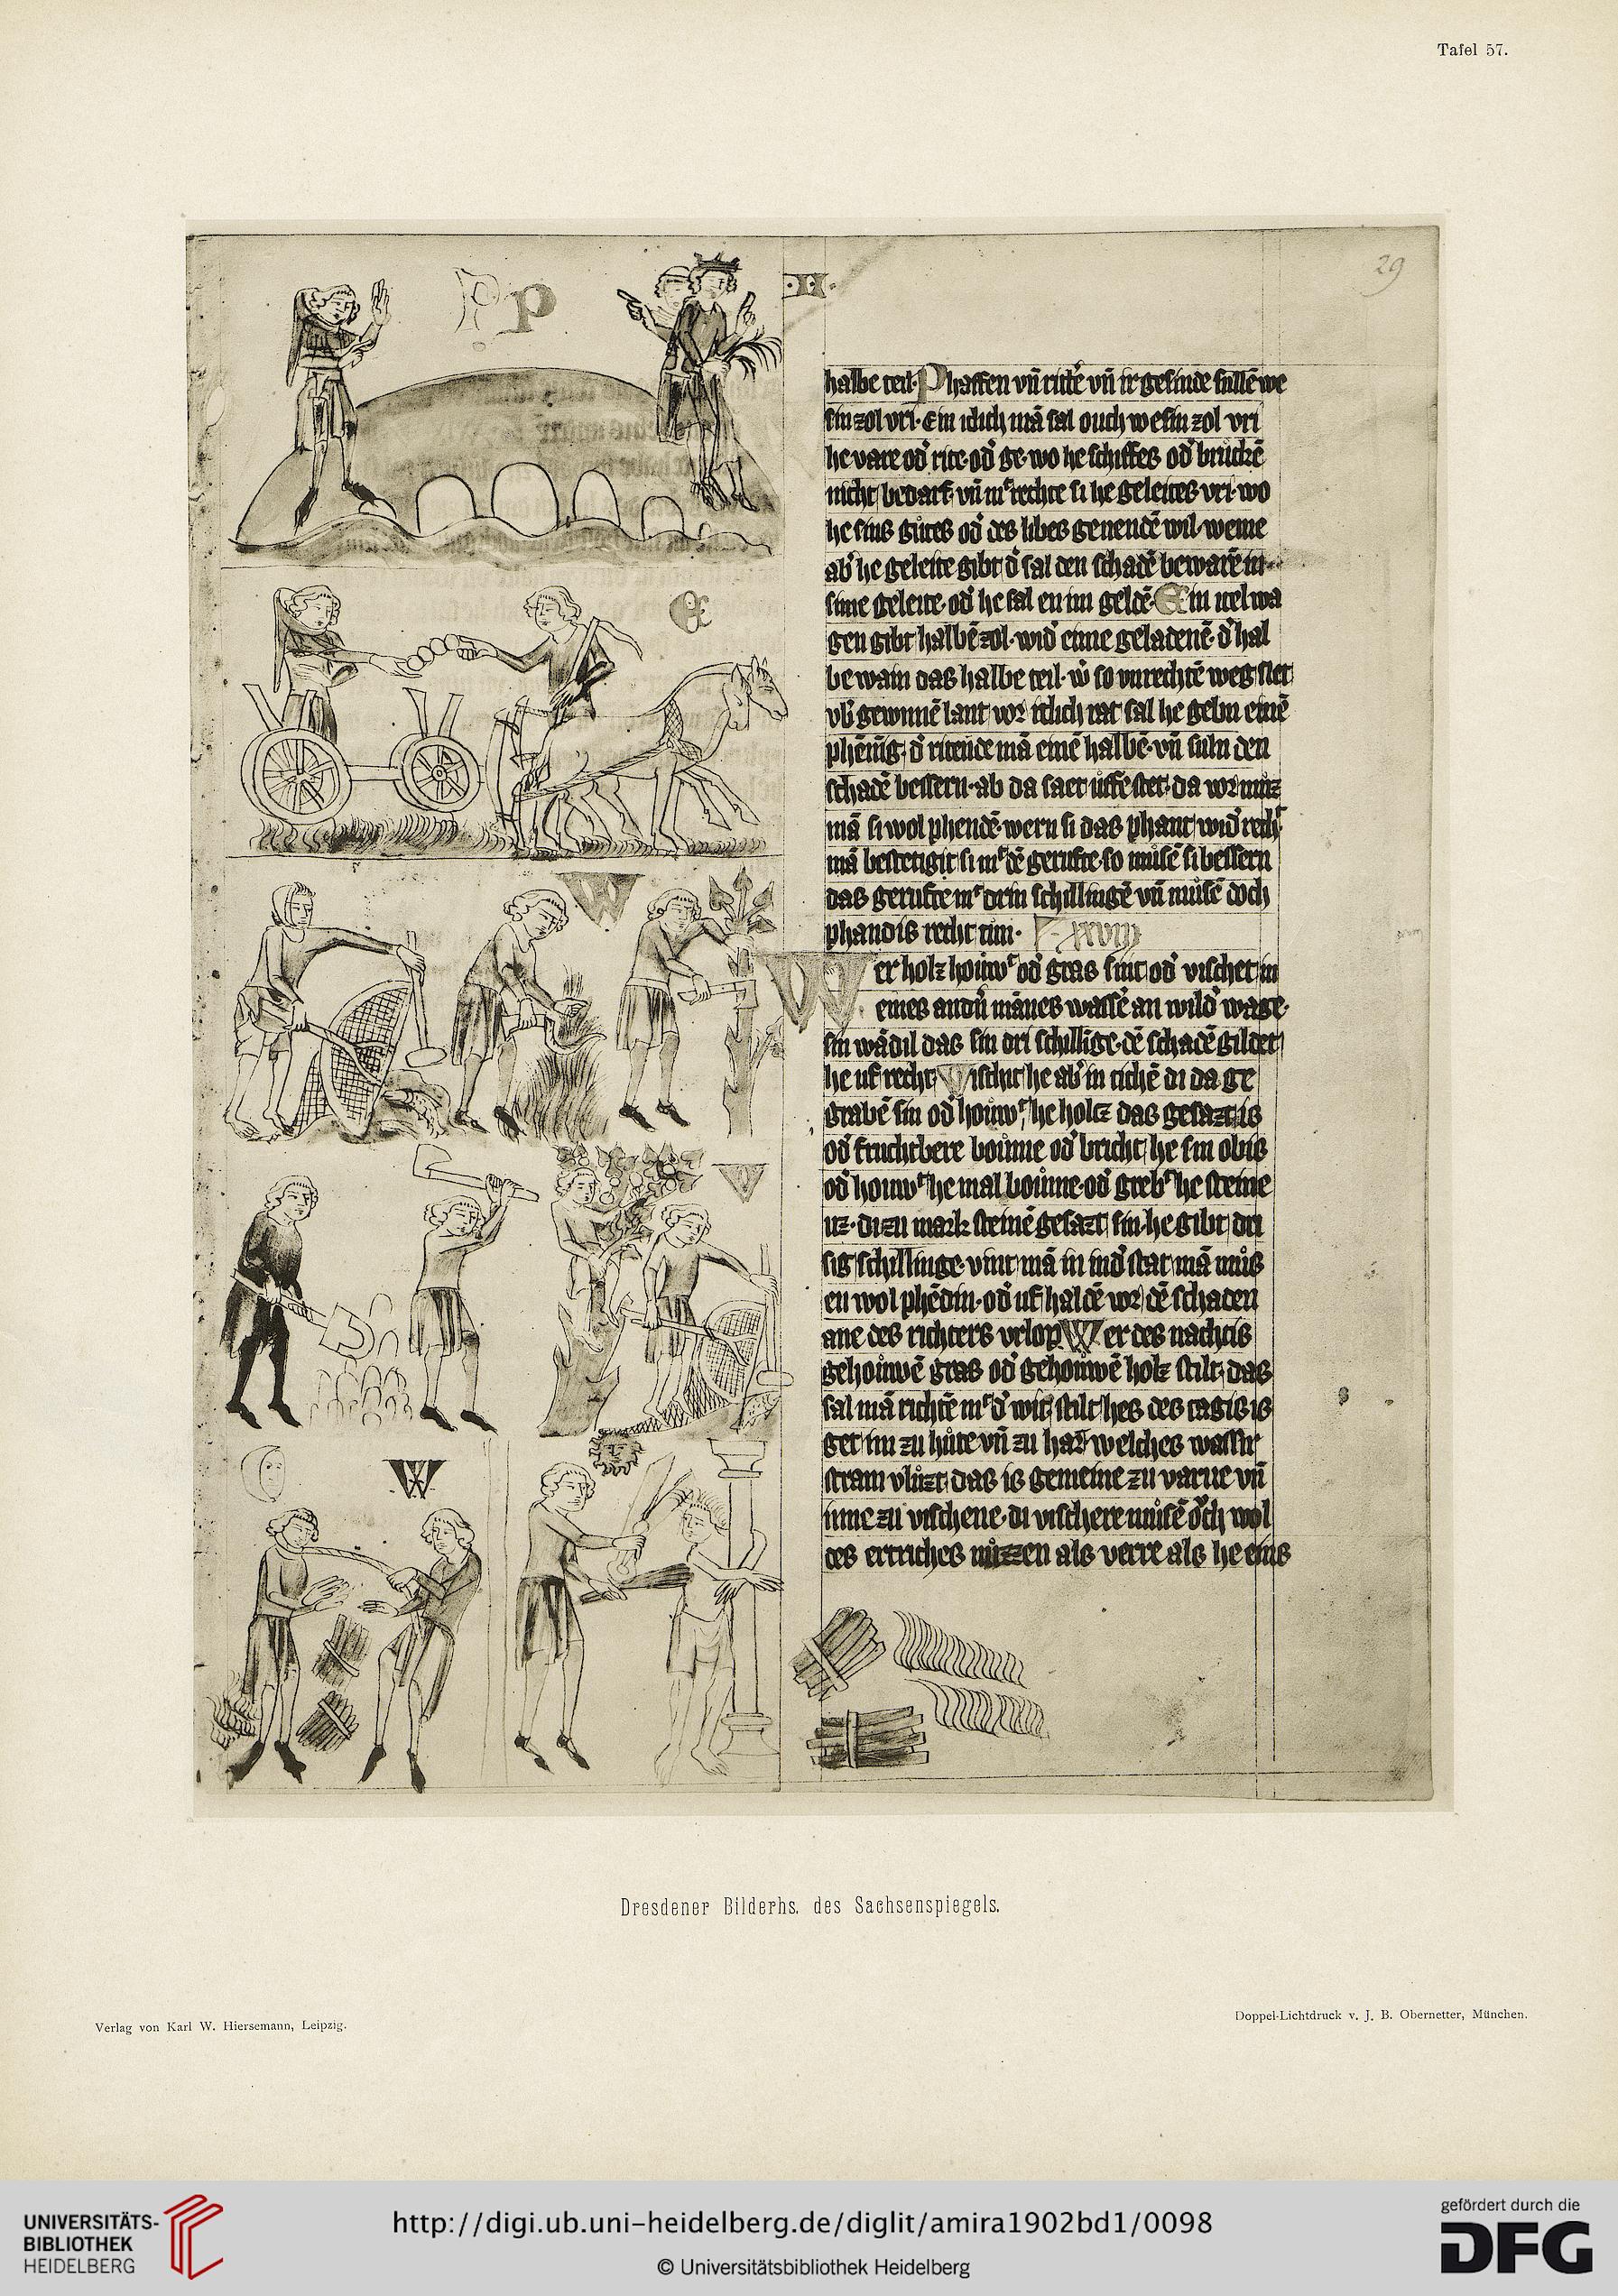 Tafel 57.
29
P p
·II·
halbe teil· Phaffen vn̄ rittē vn̄ ir gesinde sullē we
sin zol vri· Ein iclich mā sal ouch wesin zol vri
he vare od̄ rite· od̄ ge· wo he schiffes od̄ bruckē
nicht bedarf· vn̄ mͭ rechte si he geleites vri· wo
he sins gůtes od̄ des libes genendē wil· weme
ab̄ he geleite gibt d̄ sal den schadē bewarē in
sime geleite· od̄ he sal en im geldē· Ein itel wa
gen gibt halbē zol· wid̄ eime geladenē· d̄ hal
be wain das halbe teil· w̄ so vnrechtē weg slet
vb̄ gewunnē lant vor itlich rat sal he gebn einē
phēnīg· d̄ ritende mā einē halbē· vn̄ suln den
schadē bessern· ab da saet uffe stet· da vor muz
mā si wol phendē· wern si das phant wid̄ recht
mā bestetigit si mͭ dē gerufte· so můsē si bessern
das gerufte mͭ drin schillingē vn̄ můsē doch
phandis recht tun· xxviij
Wer holz houwͭ od̄ gras snit od̄ vischet in
eines andn̄ mānes wassē an wild̄ wage·
sin wādil das sin dri schillīge· dē schadē gildet
he uf recht Vischt he ab̄ in tichē di da ge
grabē sin od̄ houwͭ he holcz das gesazt is
od̄ fruchtbere boume od̄ bricht he sin obis
od̄ houwͭ he mal boume· od̄ grebͭ he steine
uz· di zu mark steinē gesazt sin· he gibt dri
sig schillinge· vint mā in ind̄ stat mā můs
en wol phēdin· od̄ uf haldē vor dē schaden
ane des richters vrlop Wer des nachtis
gehouwē gras od̄ gehouwē holz stilt· das
sal mā richtē mͭ d̄ wit· stilt hes des tagis is
get im zu hůte vn̄ zu har welches wassir
stram vlůzt das is gemeine zu varne vn̄
inne zu vischene· di vischere můsē och wol
des ertriches nůzzen als verre als he eins
E
W
W
W
Dresdener Bilderhs. des Sachsenspiegels.
Verlag von Karl W. Hiersemann, Leipzig.
Doppel-Lichtdruck v. J. B. Obernetter, München.
UNIVERSITÄTS-
BIBLIOTHEK
HEIDELBERG
http://digi.ub.uni-heidelberg.de/diglit/amira1902bd1/0098
© Universitätsbibliothek Heidelberg
gefördert durch die
DFG